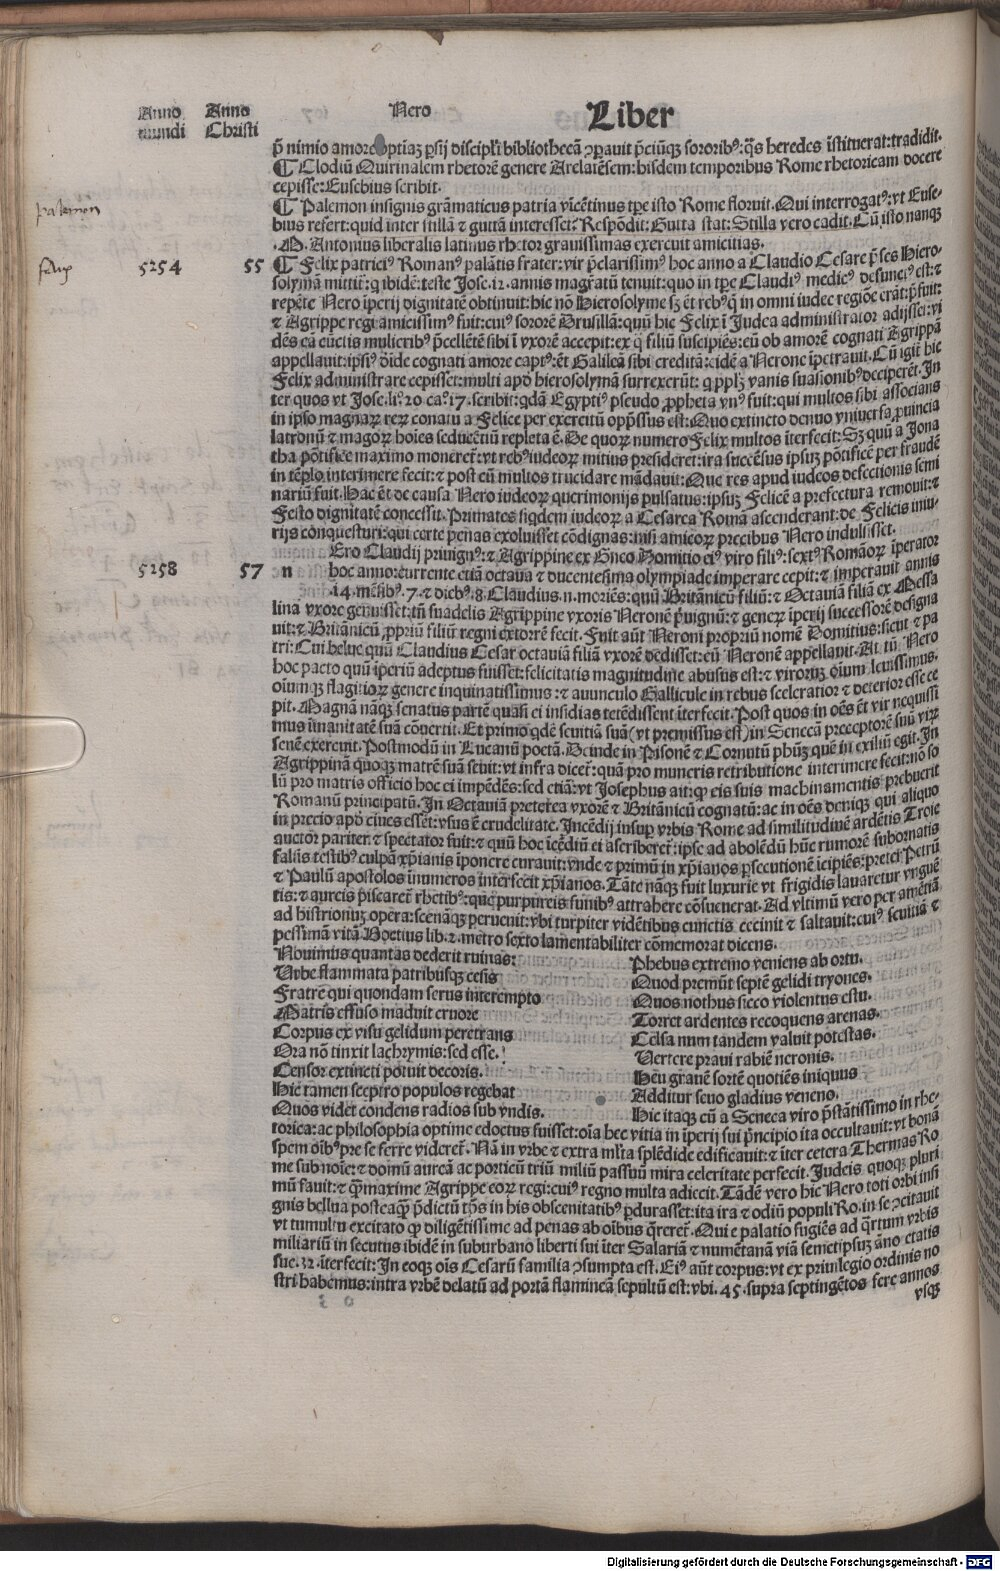 Anno Anno Nero Liber
mundi Christi
p̄ nimio amore optiaꝫ psij discipli bibliothecā ꝯparauit p̄ciūqꝫ sororibꝰ: q̄s heredes īstituerat: tradidit.
¶ Clodiū Quirinalem rhetorē genere Arelatēsem: hisdem temporibus Rome rhetoricam docere
cepisse: Eusebius scribit.
palemon
¶ Palemon insignis grāmaticus patria vicētinus tp̄e isto Rome floruit. Qui interrogatꝰ: vt Euse-
bius refert: quid inter stillā & guttā interesset: Respōdit: Gutta stat: Stilla vero cadit. Cū isto nanqꝫ
.M. Antonius liberalis latinus rhetor grauissimas exercuit amicitias.
felix 5254 55 ¶ Felix patriciꝰ Romanꝰ palātis frater: vir p̄clarissimꝰ hoc anno a Claudio Cesare p̄ses Hiero-
solymā mittit̄: q ibidē: teste Jose. 12. annis magr̄atū tenuit: quo in tp̄e Claudiꝰ medicꝰ defunctꝰ est: &
repēte Nero iperij dignitatē obtinuit: hic nō Hierosolyme sꝫ et rebꝰ q in omni iudee regiōe erāt: p̄fuit:
& Agrippe regi amicissimꝰ fuit: cuiꝰ sororē Drusillā: quū hic Felix ī Judea administrator adijsset: vi
dēs eā cūctis mulieribꝰ p̄cellētē sibi ī vxorē accepit: ex q filiū suscipiēs: eū ob amorē cognati Agrippā
appellauit: ipsiꝰ dīde cognati amore captꝰ: ēt Galileā sibi creditā: eidē a Nerone īpetrauit. Cū igit̄ hic
Felix administrare cepisset: multi apd hierosolymā surrexerūt: q pplꝫ vanis suasionibꝰ deciperēt. In
ter quos vt Jose. li. 20 ca. 17. scribit: qdā Egyptiꝰ pseudo ꝓpheta vnꝰ fuit: qui multos sibi associans
in ipso magnaꝝ reꝝ conatu a Felice per exercitū opp̄ssus est: Quo extincto denuo vniuersa ꝓuincia
latronū & magoꝝ hoīes seducētiū repleta ē. De quoꝝ numero Felix multos īterfecit: Sꝫ quū a Jona
tha pōtifice maximo moneret̄: vt rebꝰ iudeoꝝ mitius presideret: ira succēsus ipsuꝫ pōtificē per fraudē
in tēplo interimere fecit: & post eū multos trucidare mādauit: Que res apud iudeos defectionis semi
nariū fuit. Hac ēt de causa Nero iudeoꝝ querimonijs pulsatus: ipsuꝫ Felicē a prefectura remouit: &
Festo dignitatē concessit. Primates siqdem iudeoꝝ a Cesarea Romā ascenderant: de Felicis iniu-
rijs cōquesturi: qui certe penas exoluisset cōdignas: nisi amicoꝝ precibus Nero indulsisset.
Ero Claudij priuignꝰ: & Agrippine ex Gneo Domitio eiꝰ viro filiꝰ: sextꝰ Romāoꝝ īperator
5258 57 n hoc anno: currente etiā octaua & ducentesima olympiade imperare cepit: & imperauit annis
.14. mēsibꝰ .7. & diebꝰ .8. Claudius .n. moriēs: quū Britānicū filiū: & Octauiā filiā ex Messa
lina vxore genuisset: tn̄ suadelis Agrippine vxoris Neronē p̄uignū: & generꝫ īperij successorē designa
uit: & Britānicū ꝓpriū filiū regni extorrē fecit. Fuit aūt Neroni propriū nomē Domitius: sicut & pa
tri: Cui belue quū Claudius Cesar octauiā filiā vxorē dedisset: eū Neronē appellauit. At tū Nero
hoc pacto quū iperiū adeptus fuisset: felicitatis magnitudine abusus est: & viroruꝫ oīum leuissimus.
oīumqꝫ flagitioꝝ genere inquinatissimus: & auunculo Gallicule in rebus sceleratior & deterior esse ce
pit. Magnā nāqꝫ senatus partē quasi ei insidias tetēdissent īterfecit. Post quos in oēs ēt vir nequissi
mus īmanitatē suā cōuertit. Et primo qdē seuitiā suā (vt premissus est) in Senecā preceptorē suū virꝝ
senē exercuit. Postmodū in Lucanū poetā. Deinde in Pisonē & Cornutū phūꝫ quē in exiliū egit. In
Agrippinā quoqꝫ matrē suā seuit: vt infra dicet̄: quā pro muneris retributione interimere fecit: nō so
lū pro matris officio hoc ei impēdēs: sed etiā: vt Josephus ait: q eis suis machinamentis prebuerit
Romanū principatū. In Octauiā preterea vxorē & Britānicū cognatū: ac in oēs deniqꝫ qui aliquo
in precio apd ciues essēt: vsus ē crudelitate. Incēdij insuꝑ vrbis Rome ad similitudinē ardētis Troie
auctor pariter: & spectator fuit: & quū hoc īcēdiū ei ascriberet̄: ipse ad abolēdū hūc rumorē subornatis
falsis testibꝰ culpā xp̄ianis īponere curauit: vnde & primū in xp̄ianos ꝑsecutionē īcipiēs: preter Petrū
& Paulū apostolos īnumeros interfecit xp̄ianos. Tāte nāqꝫ fuit luxurie vt frigidis lauaretur vnguē
tis: & aureis p̄iscaret̄ rhetibꝰ: que purpureis funibꝰ attrahere cōsueuerat. Ad vltimū vero per amētiā
ad histrionuꝫ opera: scenāqꝫ peruenit: vbi turpiter vidētibus cunctis cecinit & saltauit: cuiꝰ seuitiā &
pessimā vitā Boetius lib. 2. metro sexto lamentabiliter cōmemorat dicens.
Nouimus quantas dederit ruinas:
Vrbe flammata patribusqꝫ cesis
Fratrē qui quondam ferus interempto
Matris effuso maduit cruore
Corpus ex visu gelidum peretrans
Ora nō tinxit lachrymis: sed esse.
Censor extincti potuit decoris.
Hic tamen sceptro populos regebat
Quos videt condens radios sub vndis.
Phebus extremo veniens ab ortu.
Quod premūt septē gelidi tryones.
Quos nothus sicco violentus estu.
Torret ardentes recoquens arenas.
Celsa num tandem valuit potestas.
Vertere praui rabiē neronis.
Heu grauē sortē quotiēs iniquus
Additur seuo gladius veneno.
Hic itaqꝫ cū a Seneca viro p̄stātissimo in rhe-
torica: ac philosophia optime edoctus fuisset: oīa hec vitia in īperij sui p̄ncipio ita occultauit: vt bonā
spem oībꝰ pre se ferre videret̄. Nā in vrbe & extra ml̄ta splēdide edificauit: & īter cetera Thermas Ro
me sub noīe: & domū aureā ac porticū triū miliū passuū mira celeritate perfecit. Judeis quoqꝫ pluri
mū fauit: & q̄ꝫmaxime Agrippe eoꝝ regi: cuiꝰ regno multa adiecit. Tādē vero hic Nero toti orbi insi
gnis bellua posteaqꝫ p̄dictū tp̄s in his obscenitatibꝰ ꝑdurasset: ita ira & odiū populi Ro. in se ꝯcitauit
vt tumultu excitato q̄ diligētissime ad penas ab oībus q̄reret̄. Qui e palatio fugiēs ad q̄rtum vrbis
miliariū in secutus ibidē in suburbano liberti sui īter Salariā & numētanā viā semetipsuꝫ āno etatis
sue. 32. īterfecit: In eoqꝫ oīs Cesarū familia ꝯsumpta est. Eiꝰ aūt corpus: vt ex priuilegio ordinis no
stri habemus: intra vrbē delatū ad portā flamineā sepultū est: vbi. 45. supra septingētos fere annos
vsqꝫ
Digitalisierung gefördert durch die Deutsche Forschungsgemeinschaft - DFG